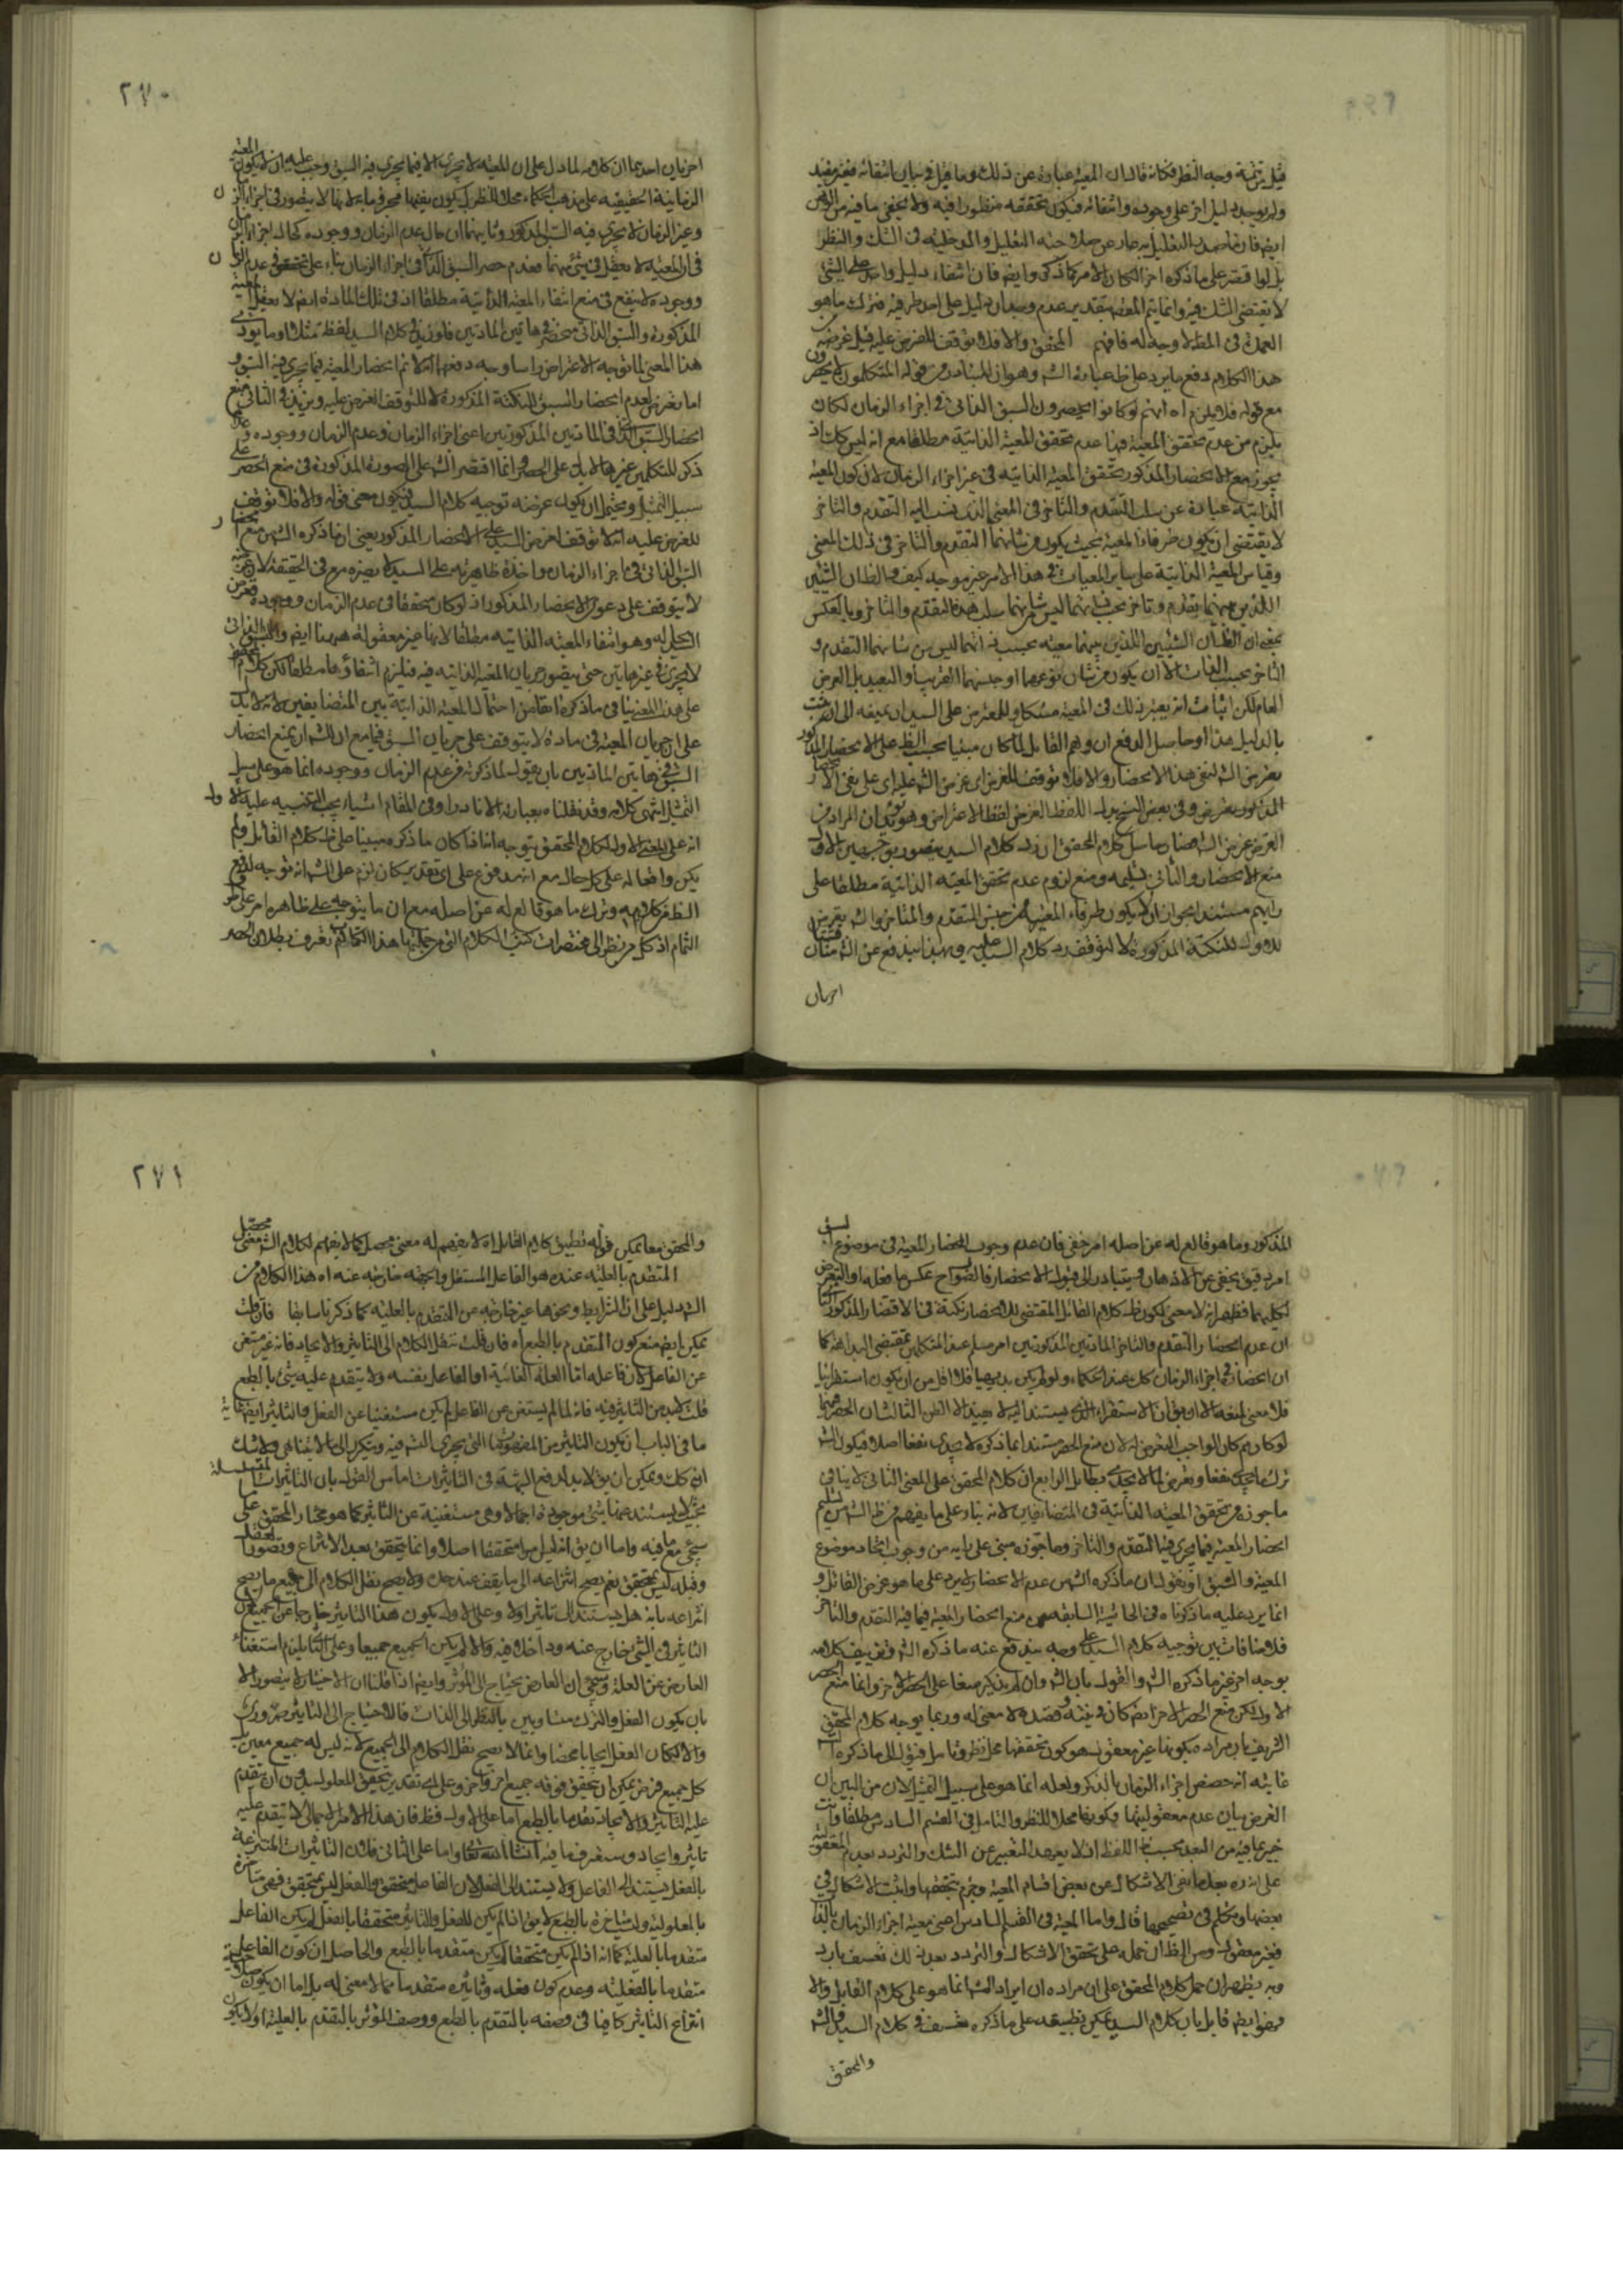 ٢٧٠
قيل تتمة وجه النظر فكانه قال ان المعية عبارة عن ذلك وما قيل في بيان انتفائه فغير مفيد
ولم يوجد دليل اخر على وجوده وانتفائه فيكون تحققه منظورا فيه ولا يخفى ما فيه من
ايضا فان حاصل التعليل صار عن صلاحية التعليل والمدخلية في الشك والنظر
بل لو اقتصر على ما ذكره اخرا لكان الامر كما ذكر وايضا فان انتفاء دليل واحد على الشئ
لا يقتضي الشك فيه وانما يتم المعية بتقدير عدم وجدان دليل على احد طرفيه فترك ما هو
العمدة في المقام لا وجه له فافهم المحقق والا فلا توقف للغرض عليه قيل غرضه
هذا الكلام دفع ما يرد على ظ عبارة الش وهو ان المتبادر من قوله المتكلمون
مع قوله فلا يلزم اه انهم لو كانوا يحصرون السبق الذاتي في اجزاء الزمان لكان
يلزم من عدم تحقق المعية فيها عدم تحقق المعية الذاتية مطلقا مع انه ليس كك اذ
يجوز مع الانحصار المذكور تحقق المعية الذاتية في غير اجزاء الزمان لان كون المعية
الذاتية عبارة عن سلب التقدم والتاخر في المعنى الذي ينسب اليه التقدم والتاخر
لا يقتضي ان يكون طرفا المعية بحيث يكون من شانهما التقدم والتاخر في ذلك المعنى
وقياس المعية الذاتية على سائر المعيات في هذا الامر غير موجه كيف والظ ان الشيئين
اللذين بينهما تقدم وتاخر بحسب ليس من شانهما سلب هذا التقدم والتاخر وبالعكس
بمعنى ان الظ ان الشيئين اللذين بينهما معية بحسب انهما ليس من شانهما التقدم و
التاخر بحسب الذات الا ان يكون من شان نوعهما او جنسهما القريب او البعيد بل العرض
العام لكن اثبات انه يعتبر ذلك في المعية مشكل وللمعترض على السيد ان يمنعه الى ان يثبت
بالدليل هذا وحاصل الدفع ان وهم القائل لما كان مبنيا بحسب الظ على الانحصار المذكور
تعرض الش لنفي هذا الانحصار والا فلا توقف للغرض اي غرض الش عليه اي على نفي الانحصار
المذكور وفي بعض النسخ بدل اللفظ الغرض لفظ الاعتراض وهو ان المراد من
الغرض غرض الش فصار حاصل كلام المحقق ان رد كلام السيد يتصور بوجهين الاول
منع الانحصار والثاني تسليمه ومنع لزوم عدم تحقق المعية الذاتية مطلقا على
رايهم مستندا بجواز ان لا يكون طرفا المعية من جنس المتقدم والمتاخر والش تعرض
للاول للنكتة المذكورة لا لتوقف رد كلام السيد عليه وبهذا يندفع عن الش
اخريان
اخريان احدهما ان كلامه لما دل على ان المعية لا تجري الا فيما يجري فيه السبق وجب عليه ان يكون
الزمانية الحقيقية على مذهب الحكماء محلا للنظر
وغير الزمان لا يجري فيه السبق المذكور وثانيهما ان حال عدم الزمان ووجوده كحال اجزاء
في ان المعية لا يعقل في شئ منهما فعدم حصر السبق الذاتي في اجزاء الزمان بناء على تحققه في عدم
ووجوده لا ينفع في منع انتفاء المعية الذاتية مطلقا اذ في تلك المادة ايضا لا يعقل
المذكورة والسبق الذاتي منحصر في هاتين المادتين فلو زيد في كلام السيد لفظ مثلا وما يؤدي
هذا المعنى لما توجه الاعتراض راسا ووجه دفعهما انه لا ثم انحصار المعية فيما يجري فيه السبق و
اما تعرض لعدم انحصار السبق للنكتة المذكورة لا لتوقف الغرض عليه ونزيد في الثاني منع
انحصار السبق الذاتي في المادتين المذكورتين اعني اجزاء الزمان وعدم الزمان ووجوده و
ذكر المتكلمين غيرهما لا يدل على الحصر وانما اقتصر الش على الصورة المذكورة في منع الحصر على
سبيل التمثيل ويحتمل ان يكون غرضه توجيه كلام السيد فيكون معنى قوله والا فلا توقف
للغرض عليه انه لا توقف لغرض السيد على الانحصار المذكور يعني ان ما ذكره الش من منع
السبق الذاتي في اجزاء الزمان مواخذة ظاهرية على السيد لا يضره في الحقيقة لان
لا يتوقف على دعوى الانحصار المذكور اذ لو كان متحققا في عدم الزمان ووجوده
السيد له وهو انتفاء المعية الذاتية مطلقا لانها غير معقولة هيهنا ايضا والسبق الذاتي
لا يجري في غيرهاتين حتى يتصور جريان المعية الذاتية فيه فيلزم انتفاؤها مطلقا لكن كلام المحقق
على هذا المعنى ينافي ما ذكره انفا من احتمال المعية الذاتية بين المتضايفين لانه لا يدل
على ان جريان المعية في مادة لا يتوقف على جريان السبق فيها مع ان للش ان يمنع انحصار
السبق في هاتين المادتين بان يقول لما ذكرته من عدم الزمان ووجوده انما هو على سبيل
التمثيل انتهى كلامه وقد نقلناه بعبارته الا نادرا وفي المقام اشياء يجب التنبيه عليها الاول
انه على المعنى الاول لكلام المحقق يتوجه انه اذا كان ما ذكره مبنيا على ظ كلام القائل ولم
يكن واقعا له على كل حال مع انه مدفوع على اي تقدير كان لزم على الش انه توجه لدفع
الظ من كلامه وترك ما هو قالع له عن اصله مع ان ما يتوجه على ظاهره امر على
التمام اذ كل من نظر الى مختصرات كتب الكلام التي من جملتها هذا الكتاب يعرف بطلان الحصر
٢٧١
المذكور وما هو قالع له عن اصله امر خفي فان عدم وجوب انحصار المعية في موضوع السبق
امر دقيق يخفى عن الاذهان ويتبادر الى قبول الانحصار فالصواح عكس ما فعله او التعرض
لكليهما فظهر انه لا معنى لكون ظ كلام القائل المقتضي للانحصار نكتة في الاقتصار المذكور الثاني
ان عدم انحصار التقدم والتاخر المادتين المذكورتين امر مسلم عند المتكلمين بمقتضى البداهة كما
ان انحصاره في اجزاء الزمان كك عند الحكماء ولو لم يكن بديهيا فلا اقل من ان يكون استقرائيا
فلا معنى لمنعه الا ان يق ان الاستقراء الذي يستند اليه لا يفيد الا الظن الثالث ان الحصر فيهما
لو كان ثم كان الواجب التعرض له لان منع الحصر مستندا بما ذكره لا يجدي نفعا اصلا فيكون الش
ترك ما يجدي نفعا وتعرض لما لا يجدي بطائل الرابع ان كلام المحقق على المعنى الثاني لا ينافي
ما جوزه من تحقق المعية الذاتية في المتضايفين لانه بناء على ما يفهم من ظ الش من تسليم
انحصار المعية فيما يجري فيه التقدم والتاخر وما جوزه مبني على رايه من وجوب اتحاد موضوع
المعية والسبق او نقول ان ما ذكره الش من عدم الانحصار لا يرد على ما هو غرض القائل و
انما يرد عليه ما ذكرناه في الحاشية السابقة من منع انحصار المعية فيما فيه التقدم والتاخر
فلا منافات بين توجيه كلام السيد على وجه يندفع عنه ما ذكره الش وتزييف كلامه
بوجه اخر غير ما ذكره الش والقول بان الش وان لم يذكر منعا على الحصر الاخر وانما منع الحصر
الاول لكن منع الحصر الاخر ايضا كان في نيته وقصده لا معنى له وربما يوجه كلام المحقق
الشريف بان مراده بكونها غير معقول هو كون تحققها محل نظر وتامل فيؤل الى ما ذكره الش
غايته انه خصص اجزاء الزمان بالذكر ولعله انما هو على سبيل التمثيل لان من البين ان
الغرض بيان عدم معقوليتها وكونها محلا للنظر والتامل في القسم السادس مطلقا وانت
خبير بما فيه من البعد بحسب اللفظ اذ لا يعهد التعبير عن الشك والتردد بعدم المعقولية
على انه ره بعد ما نفى الاشكال عن بعض اقسام المعية وجزم بتحققها واثبت الاشكال في
بعضها وتكلم في تصحيحها قال واما المعية في القسم السادس اعني معية اجزاء الزمان بالذات
فغير معقول ومن الظ ان حمله على تحقق الاشكال والتردد بعد ذلك تعسف بارد
وبه يظهر ان حمل كلام المحقق على ان مراده ان ايراد الش انما هو على كلام القائل والا
فهو ايضا قائل بان كلام السيد يمكن تطبيقه على ما ذكره تعسف في كلام السيد والش
والمحقق
والمحقق معا يمكن قوله تطبيق كلام القائل اه لا يفهم له معنى محصل كما لا يفهم لكلام الش معنى محصل
المتقدم بالعلية عنده هو الفاعل المستقل والجهة خارجة عنه اه هذا الكلام من
الش دليل على ان الشرايط ونحوها عنده خارجة عن المتقدم بالعلية كما ذكرنا سابقا فان قلت
يمكن ايضا منع كون المتقدم بالطبع اه فان قلت ننقل الكلام الى التاثير والايجاد فانه غير مستغن
عن الفاعل لان فاعله اما العلة الغائية او الفاعل بنفسه ولا يتقدم عليه شئ بالطبع
قلت لا بد من التاثير فيه فانه لما لم يستغن عن الفاعل لم يكن مستغنيا عن الفعل والتاثير ايضا غاية
ما في الباب ان يكون التاثير من المفهومات التي يجري الش فيه ويتكرر الى ما لا يتناهى ولا شك
انه كك ويمكن ان يق لا بد لدفع الشبهة في التاثيرات اما من القول بان التاثيرات المتسلسلة
بحيث لا يستند عنها شئ موجودة اجمالا وهي مستغنية عن التاثير كما هو مختار المحقق على
سيجئ مع ما فيه واما ان يق انه ليس امرا متحققا اصلا وانما يتحقق بعد الانتزاع وتصور العقل
وقبله ليس بمتحقق نعم يصح انتزاعه الى ما يقف عند حد ولا يصح نقل الكلام الى جميع ما يصح
انتزاعه بانه هل يستند الى تاثير اولا وعلى الاول يكون هذا التاثير خارجا عن الجميع لان
التاثير في الشئ خارج عنه وداخلا فيه والا لم يكن الجميع جميعا وعلى الثاني يلزم استغناء
العارض عن العلة وسيجئ ان العارض يحتاج الى المؤثر وايضا اذا قلنا ان الاختيار لا يتصور الا
بان يكون الفعل والترك متساويين بالنظر الى الذات فالاحتياج الى التاثير ضروري
والا لكان الفعل ايجابا محضا وانما لا يصح نقل الكلام الى الجميع لانه ليس له جميع معين بل
كل جميع فرض يمكن ان يتحقق فوقه جميع اخر وعلى اي تقدير تحقق المعلول بدون ان يتقدم
عليه التاثير والايجاد تقدما بالطبع اما على الاول فظ فان هذا الامر الاجمالي لا يتقدم عليه
تاثير وايجاد وستعرف ما فيه انشاء الله تعا واما على الثاني فلان التاثيرات المنتزعة
بالفعل يستند الى الفاعل ولا يستند الى الفعل لان الفاعل متحقق والفعل ليس بمتحقق فهي متاخرة
بالمعلولية وليست متاخرة بالطبع لا يق اذا لم يكن للفعل والتاثير متحققا بالفعل لم يكن الفاعل
متقدما بالعلية كما انه اذ لم يكن متحققا لم يكن متقدما بالطبع والحاصل ان كون الفاعل
متقدما بالعلية وعدم كون فعله وتاثيره متقدما مما لا معنى له بل اما ان يكون صلاحية
انتزاع التاثير كافيا في وصفه بالتقدم بالطبع ووصف المؤثر بالتقدم بالعلية او لا يكون